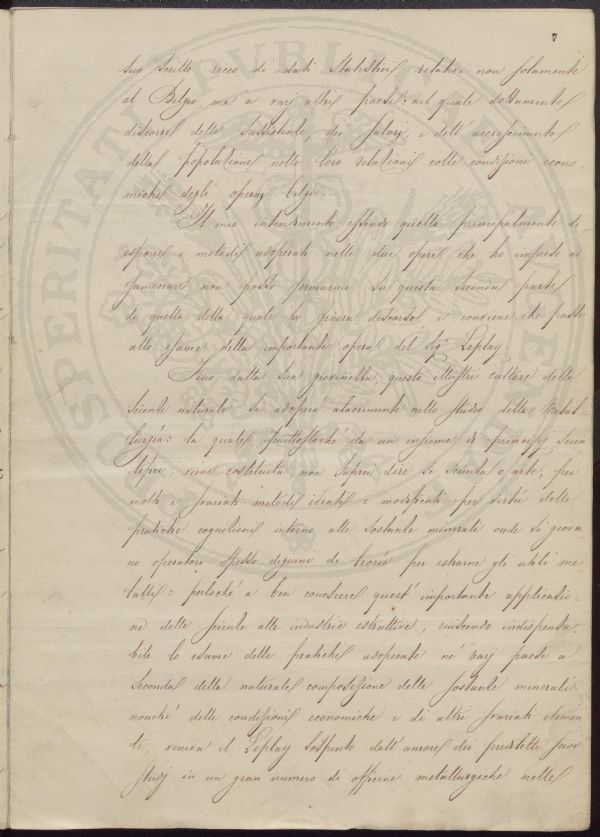 7
suo scritto ricco di dati Statistici, relativi non solamente
al Belgio, ma a varj altri paesi: nel quale dottamente
discorre delle sussistenze, dei salarj, e dell'accrescimento
della popolazione nelle loro relazioni colle condizioni econo-
miche degli operaj belgi.
Il mio intendimento essendo quello principalmente di
esporre i metodi adoperati nelle due opere che ho impreso ad
esaminare non posso fermarmi su questa seconda parte
di quella della quale ho finora discorso e conviene che passi
allo esame della importante opera del Sig. Leplay.
Fino dalla sua giovinezza questo illustre cultore delle
scienze naturali si adoperò alacremente nello studio della Metal-
lurgia: la quale piuttostochè da un insieme di principj scien-
tifici, viene costituita, non saprei dire se scienza o arte, pei
molti e svariati metodi ideati e modificati per virtù delle
pratiche cognizioni intorno alle sostanze minerali onde si giova-
no operatori spesso digiuni di teorie per estrarne gli utili me-
talli: perlochè a ben conoscere quest'importante applicazio-
ne delle scienze alle industrie estrattive, riuscendo indispensa-
bile lo esame delle pratiche adoperate ne' varj paesi a
seconda della naturale composizione delle sostanze minerali
nonchè delle condizioni economiche e di altri svariati elemen-
ti, veniva il Leplay sospinto dall'amore dei prediletti suoi
studj in un gran numero di officine metallurgiche nelle